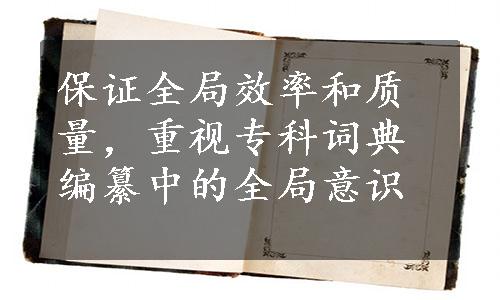 保证全局效率和质
量，重视专科词典
编纂中的全局意识